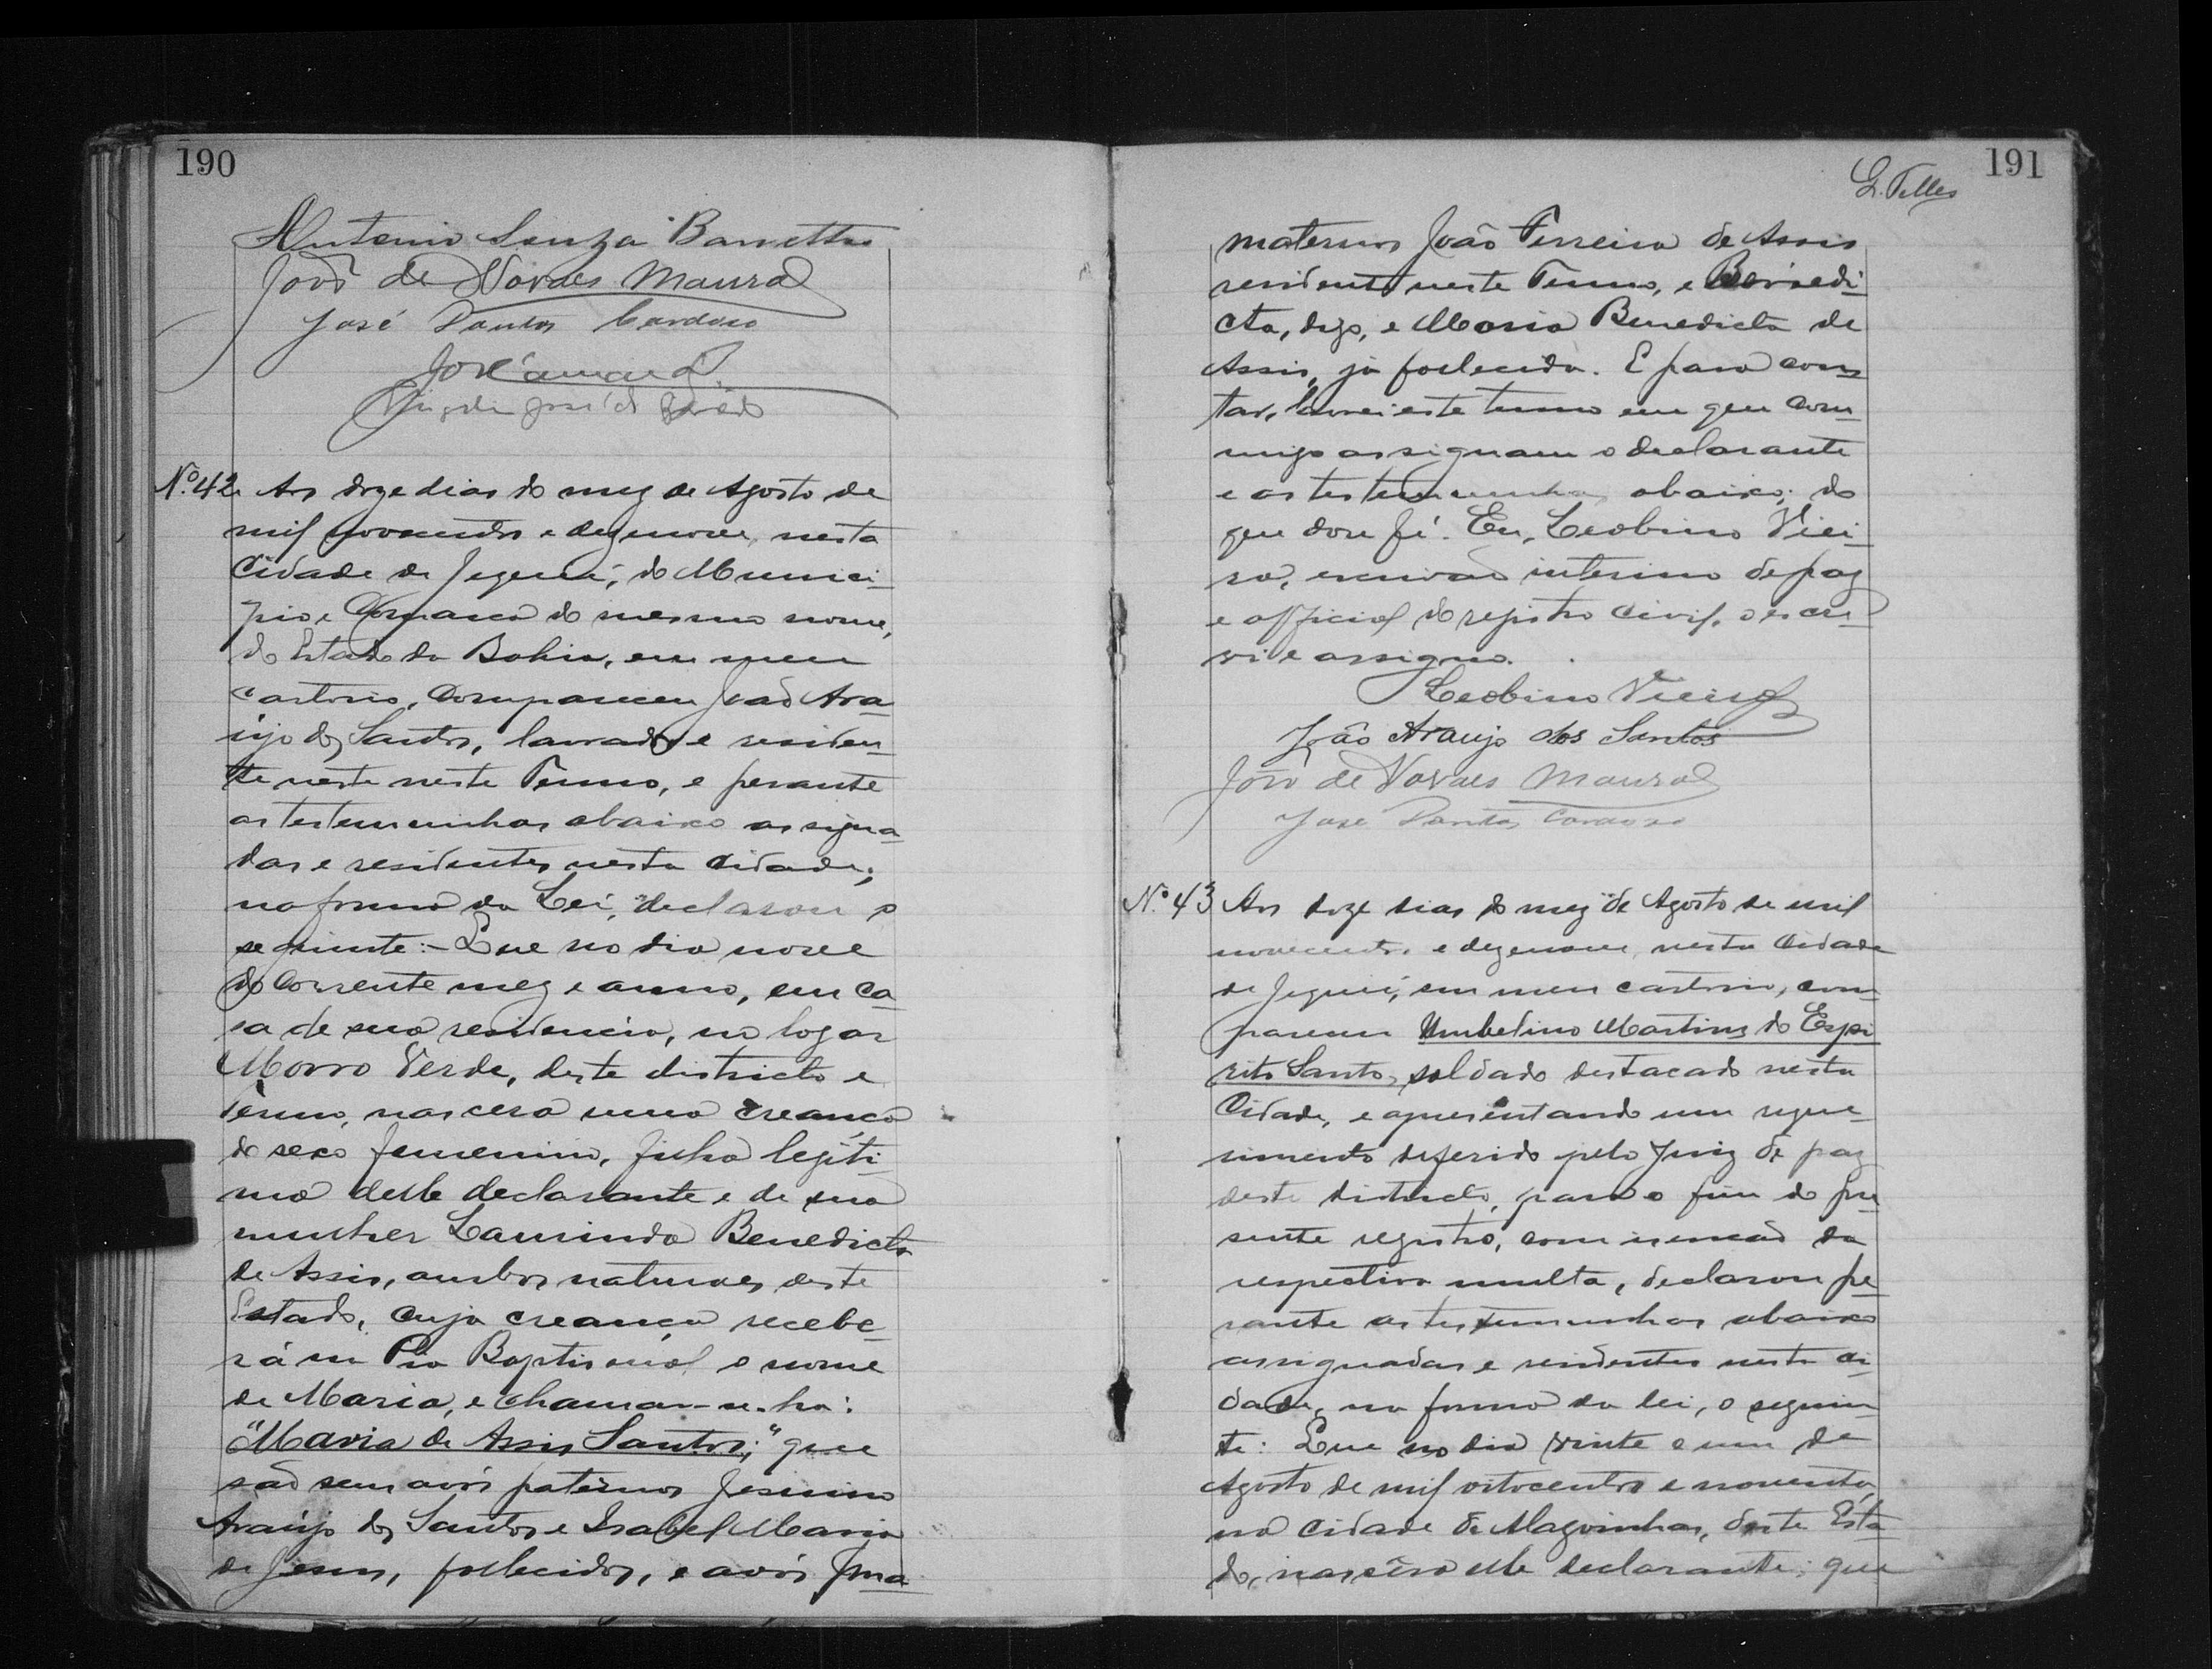 190
Antonio Souza Barretto
João de Novaes Moura
José Dantas Cardoso
José
No. 42 Aos doze dias do mez de Agosto de
mil novecentos e dezenove, nesta
Cidade de Jequié, do Munici-
pio e Comarca do mesmo nome,
do Estado da Bahia, em meu
cartorio, compareceu João Ara-
újo dos Santos, lavrador e residen-
te neste neste Termo, e perante
as testemunhas abaixo assigna-
das e residentes nesta cidade,
na forma da Lei, declarou o
seguinte:- Que no dia nove
do corrente mez e anno, em ca-
sa de sua residencia, no logar
Morro Verde, deste districto e
termo, nascera uma creança
do sexo femenino, filha legiti-
ma delle declarante e de sua
mulher Laurinda Benedicta
de Assis, ambos naturaes deste
Estado, cuja creança recebe-
rá na Pia Baptismal o nome
de Maria, e chamar-se-ha:
"Maria de Assis Santos;" que
são seus avós paternos Jesuino
Araújo dos Santos e Isabel Maria
de Jesus, fallecidos, e avós ma-
191
G. Telles
maternos João Ferreira de Assis
residente neste Termo, e Benedi-
cta, digo, e Maria Benedicta de
Assis, já fallecida. E para cons-
tar, lavrei este termo em que com-
migo assignam o declarante
e as testemunhas abaixo; do
que dou fé. Eu, Leobino Viei-
ra, escrivão interino de paz
e official do registro civil, o escre-
vi e assigno.
Leobino Vieira
João Araujo dos Santos
João de Novaes Moura
José Dantas Cardoso
No. 43 Aos doze dias do mez de Agosto de mil
novecentos e dezenove, nesta Cidade
de Jequié, em meu cartorio, com-
pareceu Umbelino Martins do Espi-
rito Santo, soldado destacado nesta
Cidade, e apresentando um reque-
rimento deferido pelo Juiz de paz
deste districto, para o fim do pre-
sente registro, com isenção da
respectiva multa, declarou pe-
rante as testemunhas abaixo
assignadas e residentes nesta ci-
dade, na forma da lei, o seguin-
te: Que no dia vinte e um de
Agosto de mil oitocentos e noventa,
na cidade de Alagoinhas, deste Esta-
do, nascêra elle declarante; que